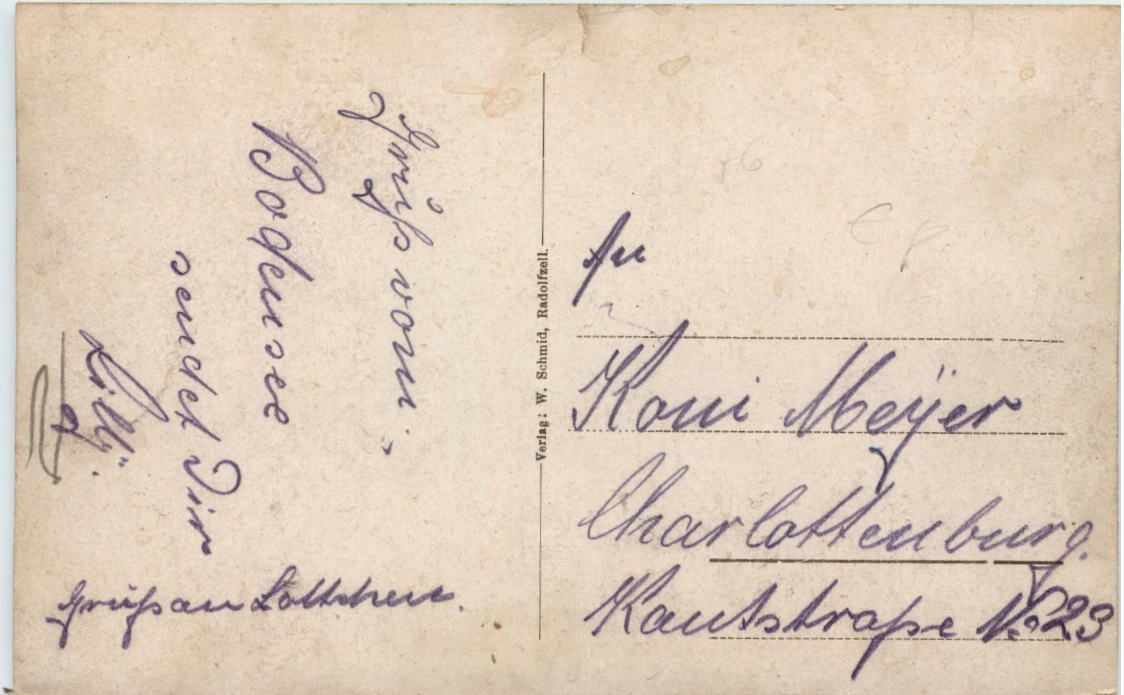 Gruß vom
Bodensee
sendet Dir
Lillÿ.
Gruß an Lottchen.
Verlag: W. Schmid, Radolfzell.
An
Koni Meÿer
Charlottenburg.
Kantstraße No 23